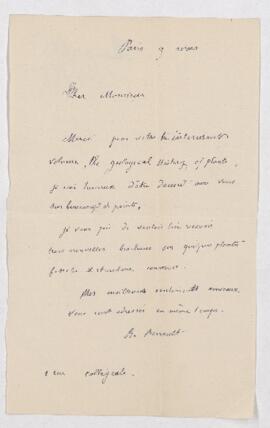 Paris 9 mars
Cher Monsieur
Merci pour votre très intéressant
volume, The geological history of plants,
je suis heureux d'être d'accord avec vous
sur beaucoup de points.
je vous prie de vouloir bien recevoir
trois nouvelles brochures sur quelques plantes
fossiles à structure conservée.
Mes meilleurs sentiments
vous sont adressés en même temps.
B. Renault
1 rue Collégiale.